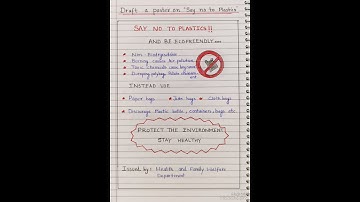 Draft a poster on "Say no to Plastics"
SAY NO TO PLASTICS!!
AND BE ECOFRIENDLY...
Non Biodegradable
Burning causes Air pollution
Toxic Chemicals
Dumping polybags Pollute
INSTEAD USE
Paper bags Jute bags Cloth bags
Discourage Plastic bottle, containers, bags etc.
PROTECT THE ENVIRONMENT,
STAY HEALTHY
Issued by: Health and Family Welfare
Department